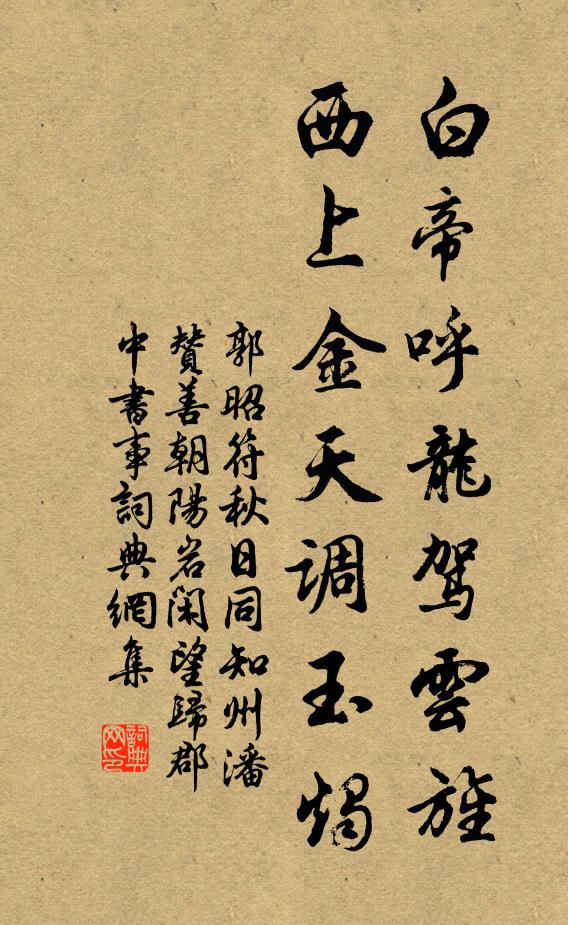 白帝呼龍駕雲旌
西上金天調玉燭
郭昭符秋日同知州潘
贊善朝陽岩閑望歸郡
中書事詞典網集
詞典
网印